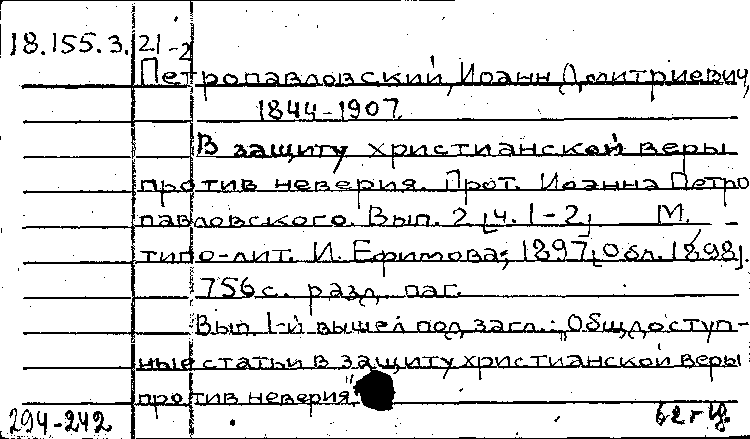 18.155.3.21-2
Петропавловский, Иоанн Дмитриевич,
1844-1907.
В защиту христианской веры
против неверия. Прот. Иоанна Петро
павловского. Вып. 2 [ч. 1-2] М.
типо-лит. И. Ефимова, 1897 [обл. 1898].
756 с. разд. паг.
Вып. 1-й вышел под загл.: „Общедоступ-
ные статьи в защиту христианской веры
против неверия"
294-242